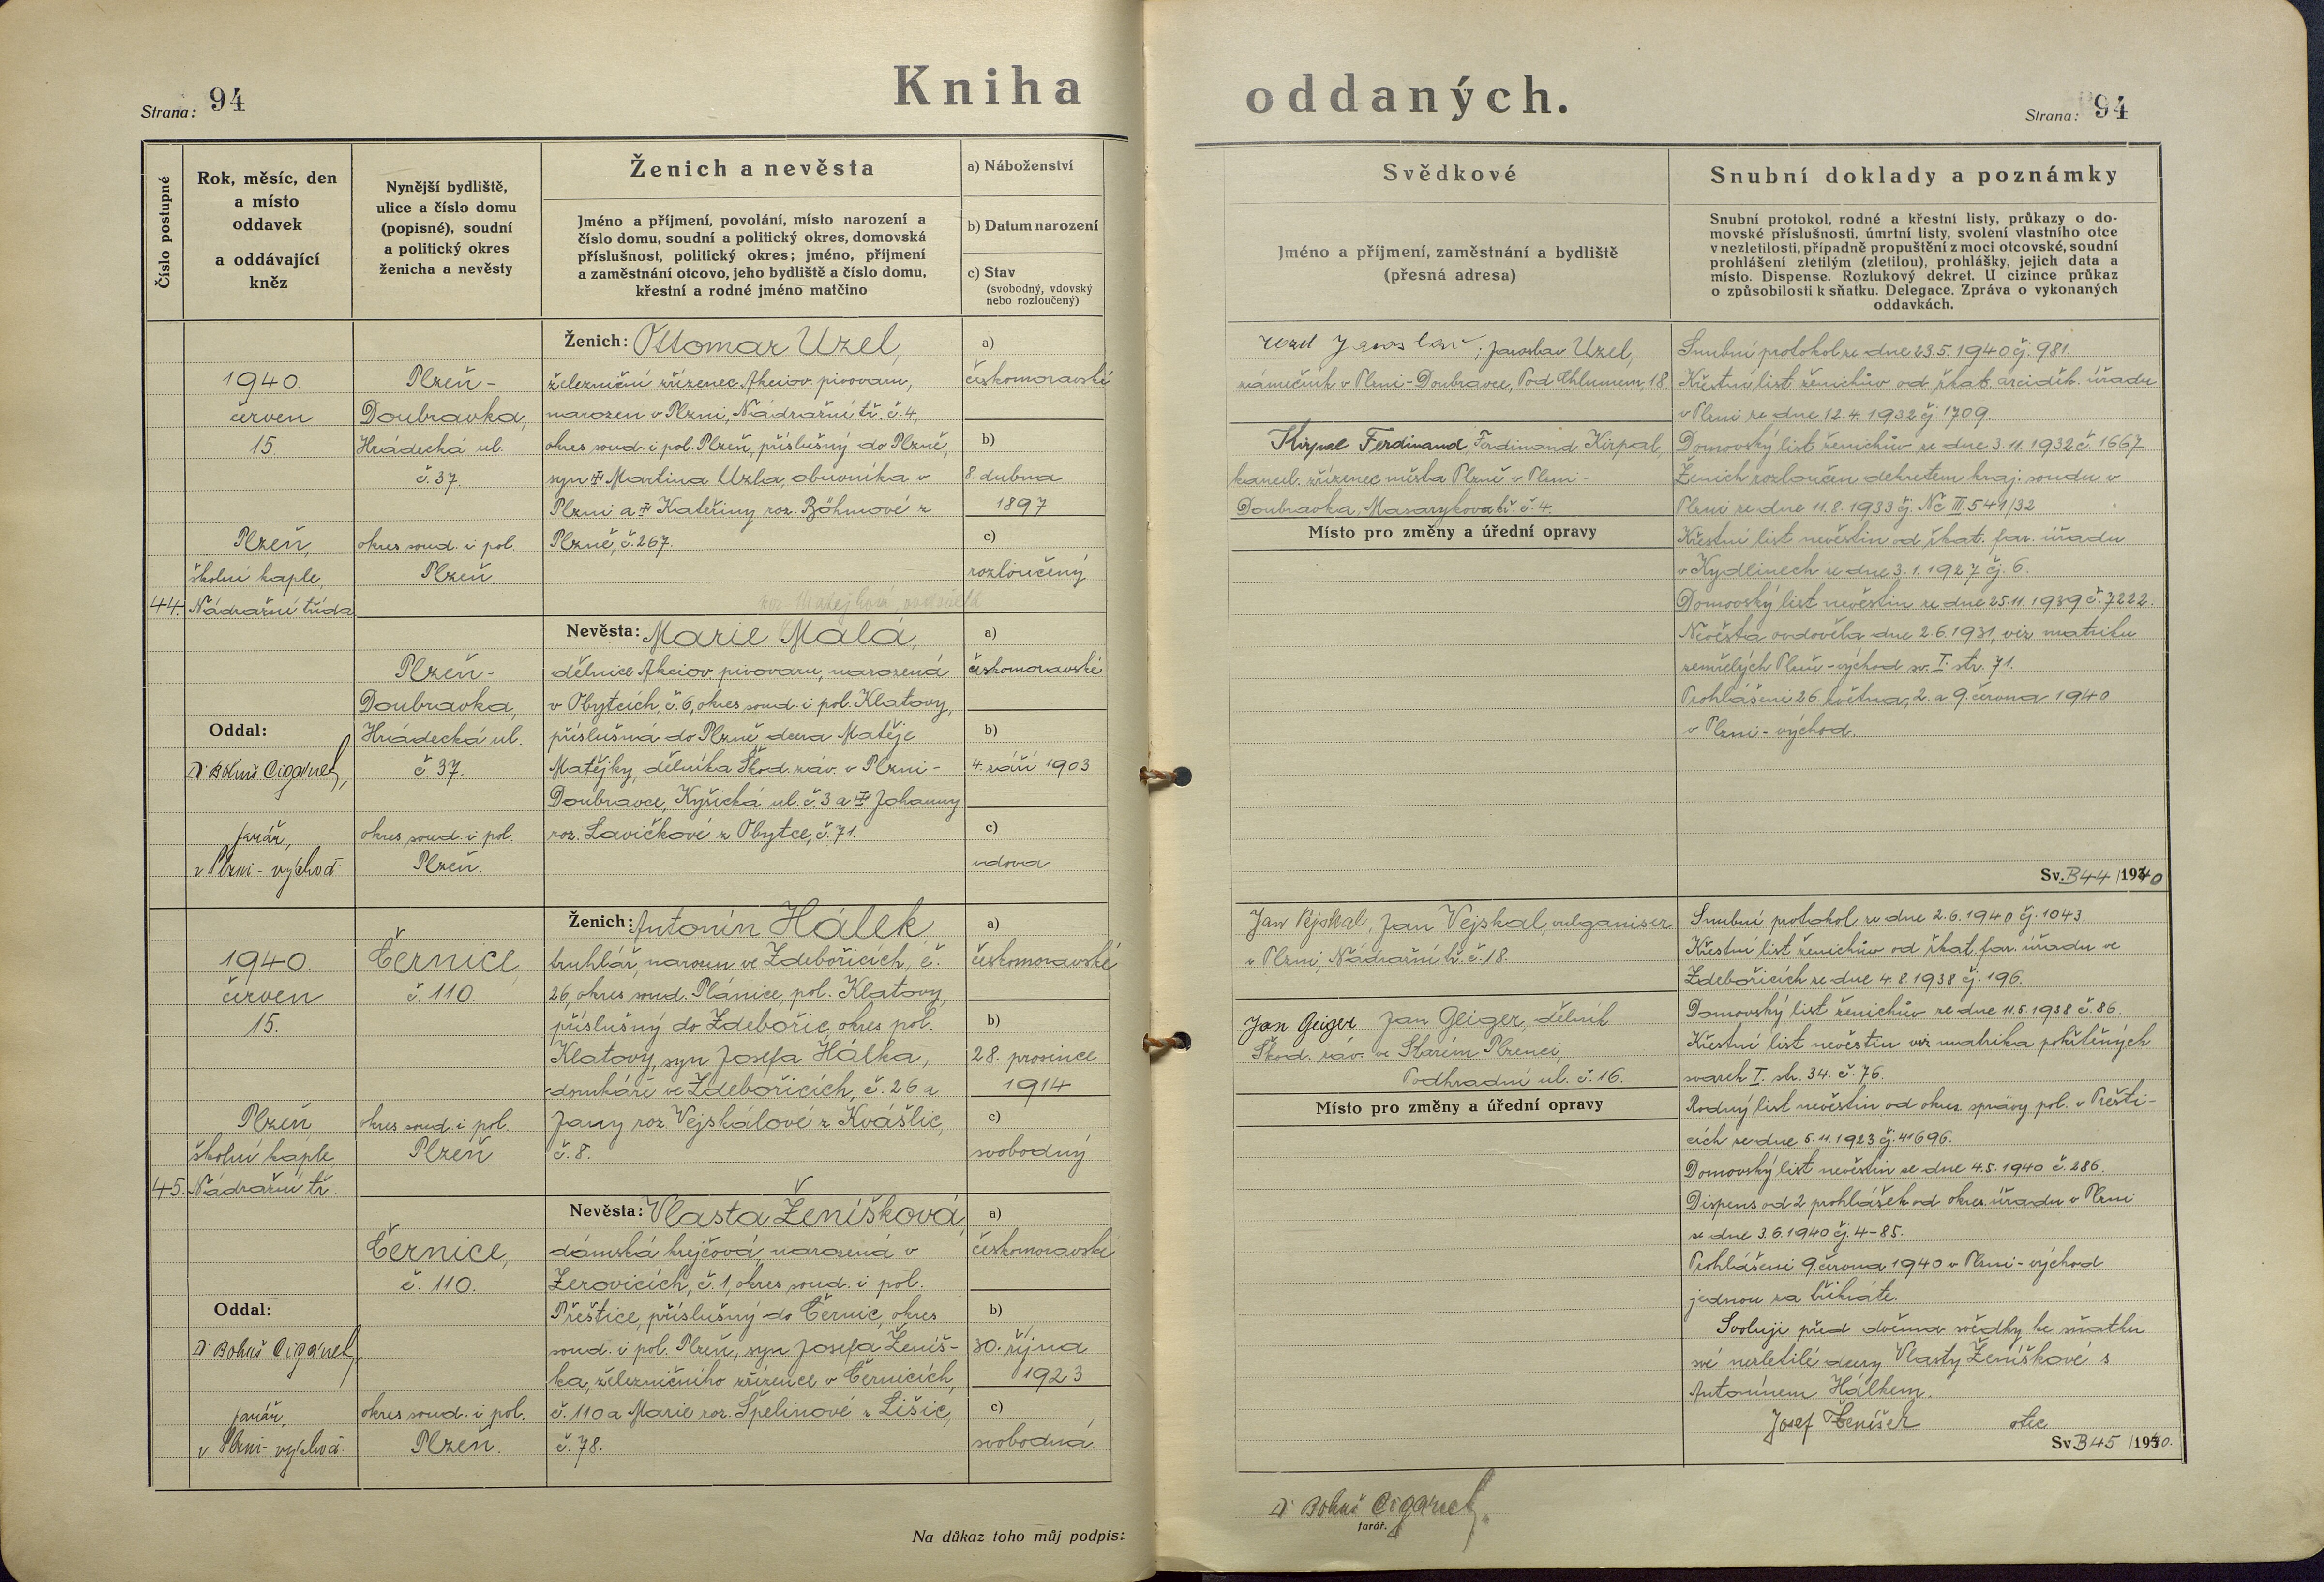 Strana: 94
Kniha oddaných.
Strana: 94
Číslo postupné
Rok, měsíc, den
a místo
oddavek
a oddávající
kněz
Nynější bydliště,
ulice a číslo domu
(popisné), soudní
a politický okres
ženicha a nevěsty
Ženich a nevěsta
Jméno a příjmení, povolání, místo narození a
číslo domu, soudní a politický okres, domovská
příslušnost, politický okres; jméno, příjmení
a zaměstnání otcovo, jeho bydliště a číslo domu,
křestní a rodné jméno matčino
a) Náboženství
b) Datum narození
c) Stav
(svobodný, vdovský
nebo rozloučený)
Svědkové
Jméno a příjmení, zaměstnání a bydliště
(přesná adresa)
Snubní doklady a poznámky
Snubní protokol, rodné a křestní listy, průkazy o do-
movské příslušnosti, úmrtní listy, svolení vlastního otce
v nezletilosti, případně propuštění z moci otcovské, soudní
prohlášení zletilým (zletilou), prohlášky, jejich data a
místo. Dispense. Rozlukový dekret. U cizince průkaz
o způsobilosti k sňatku. Delegace. Zpráva o vykonaných
oddavkách.
44.
1940.
červen
15.
Plzeň,
školní kaple,
Nádražní třída
Oddal:
Dr Bohuš Cigánek,
farář,
v Plzni-východ.
Plzeň-
Doubravka,
Hrádecká ul.
č. 37.
okres soud. i pol.
Plzeň
Plzeň-
Doubravka,
Hrádecká ul.
č. 37.
okres soud. i pol.
Plzeň.
Ženich: Ottomar Uzel,
železniční zřízenec Akciov. pivovaru,
narozen v Plzni, Nádražní tř. č. 4,
okres soud. i pol. Plzeň, příslušný do Plzně,
syn Martina Uzla, obuvníka v
Plzni a Kateřiny roz. Böhmové z
Plzně, č. 267.
a)
českomoravské
b)
8. dubna
1897
c)
rozloučený
roz. Matějková, ovdovělá
Nevěsta: Marie Malá,
dělnice Akciov. pivovaru, narozená
v Obytcích, č. 6, okres soud. i pol. Klatovy,
příslušná do Plzně dcera Matěje
Matějky, dělníka Škod. záv. v Plzni-
Doubravce, Kyšická ul. č. 3 a Johanny
roz. Lavičkové z Obytce, č. 71.
a)
českomoravské
b)
4. září 1903
c)
vdova
Uzel Jaroslav, Jaroslav Uzel,
zámečník v Plzni-Doubravce, Pod Chlumem, 18.
Kirpal Ferdinand, Ferdinand Kirpal,
kancel. zřízenec města Plzně v Plzni-
Doubravka, Masarykova tř. č. 4.
Místo pro změny a úřední opravy
Snubní protokol ze dne 23.5.1940 čj. 981.
Křestní list ženichův od řkat. arciděk. úřadu
v Plzni ze dne 12.4.1932 čj. 1709.
Domovský list ženichův ze dne 3.11.1932 č. 1667
Ženich rozloučen dekretem kraj. soudu v
Plzni ze dne 11.8.1933 čj. Nc III. 541/32
Křestní list nevěstin od řkat. far. úřadu
v Kydlinech ze dne 3.1.1927 čj. 6.
Domovský list nevěstin ze dne 25.11.1939 č. 7222.
Nevěsta ovdověla dne 2.6.1931, viz matriku
zemřelých Plzeň-východ sv. I. str. 71.
Prohlášeni 26. května, 2. a 9. června 1940
v Plzni-východ.
Sv. B 44 /1940
45.
1940.
červen
15.
Plzeň
školní kaple
Nádražní tř.
Oddal:
Dr Bohuš Cigánek,
farář,
v Plzni-východ.
Černice,
č. 110.
okres soud. i pol.
Plzeň
Černice,
č. 110.
okres soud. i pol.
Plzeň.
Ženich: Antonín Hálek
truhlář, narozen ve Zdebořicích, č.
26, okres soud. Plánice, pol. Klatovy,
příslušný do Zdebořic, okres pol.
Klatovy, syn Josefa Hálka,
domkáře ve Zdebořicích, č. 26 a
Jany roz. Vejskalové z Kvášlic,
č. 8.
a)
českomoravské
b)
28. prosince
1914
c)
svobodný
Nevěsta: Vlasta Ženíšková,
dámská krejčová, narozená v
Zerovicích, č. 1, okres soud. i pol.
Přeštice, příslušný do Černic, okres
soud. i pol. Plzeň, syn Josefa Ženíš-
ka, železničního zřízence v Černicích,
č. 110 a Marie roz. Špelinové z Lišic,
č. 78.
a)
českomoravské
b)
30. října
1923
c)
svobodná.
Jan Vejskal, Jan Vejskal, vulganiser
v Plzni, Nádražní tř. č. 18.
Jan Geiger Jan Geiger, dělník
Škod. záv. ve Starém Plzenci,
Podhradní ul. č. 16.
Místo pro změny a úřední opravy
Snubní protokol ze dne 2.6.1940 čj. 1043.
Křestní list ženichův od řkat. far. úřadu ve
Zdebořicích ze dne 4.8.1938 čj. 196.
Domovský list ženichův ze dne 11.5.1938 č. 86.
Křestní list nevěstin viz matrika pokřtěných
svazek I. str. 34. č. 76.
Rodný list nevěstin od okres. správy pol. v Přešti-
cích ze dne 6.11.1923 čj. 41696.
Domovský list nevěstin ze dne 4.5.1940 č. 286.
Dispens od 2 prohlášek od okres. úřadu v Plzni
ze dne 3.6.1940 čj. 4-85.
Prohlášeni 9. června 1940 v Plzni-východ
jednou za třikráte.
Svoluji před dvěma svědky ke sňatku
své nezletilé dcery Vlasty Ženíškové s
Antonínem Hálkem.
Josef Ženíšek otec
Sv. B 45 /1940.
Na důkaz toho můj podpis:
Dr Bohuš Cigánek,
farář.